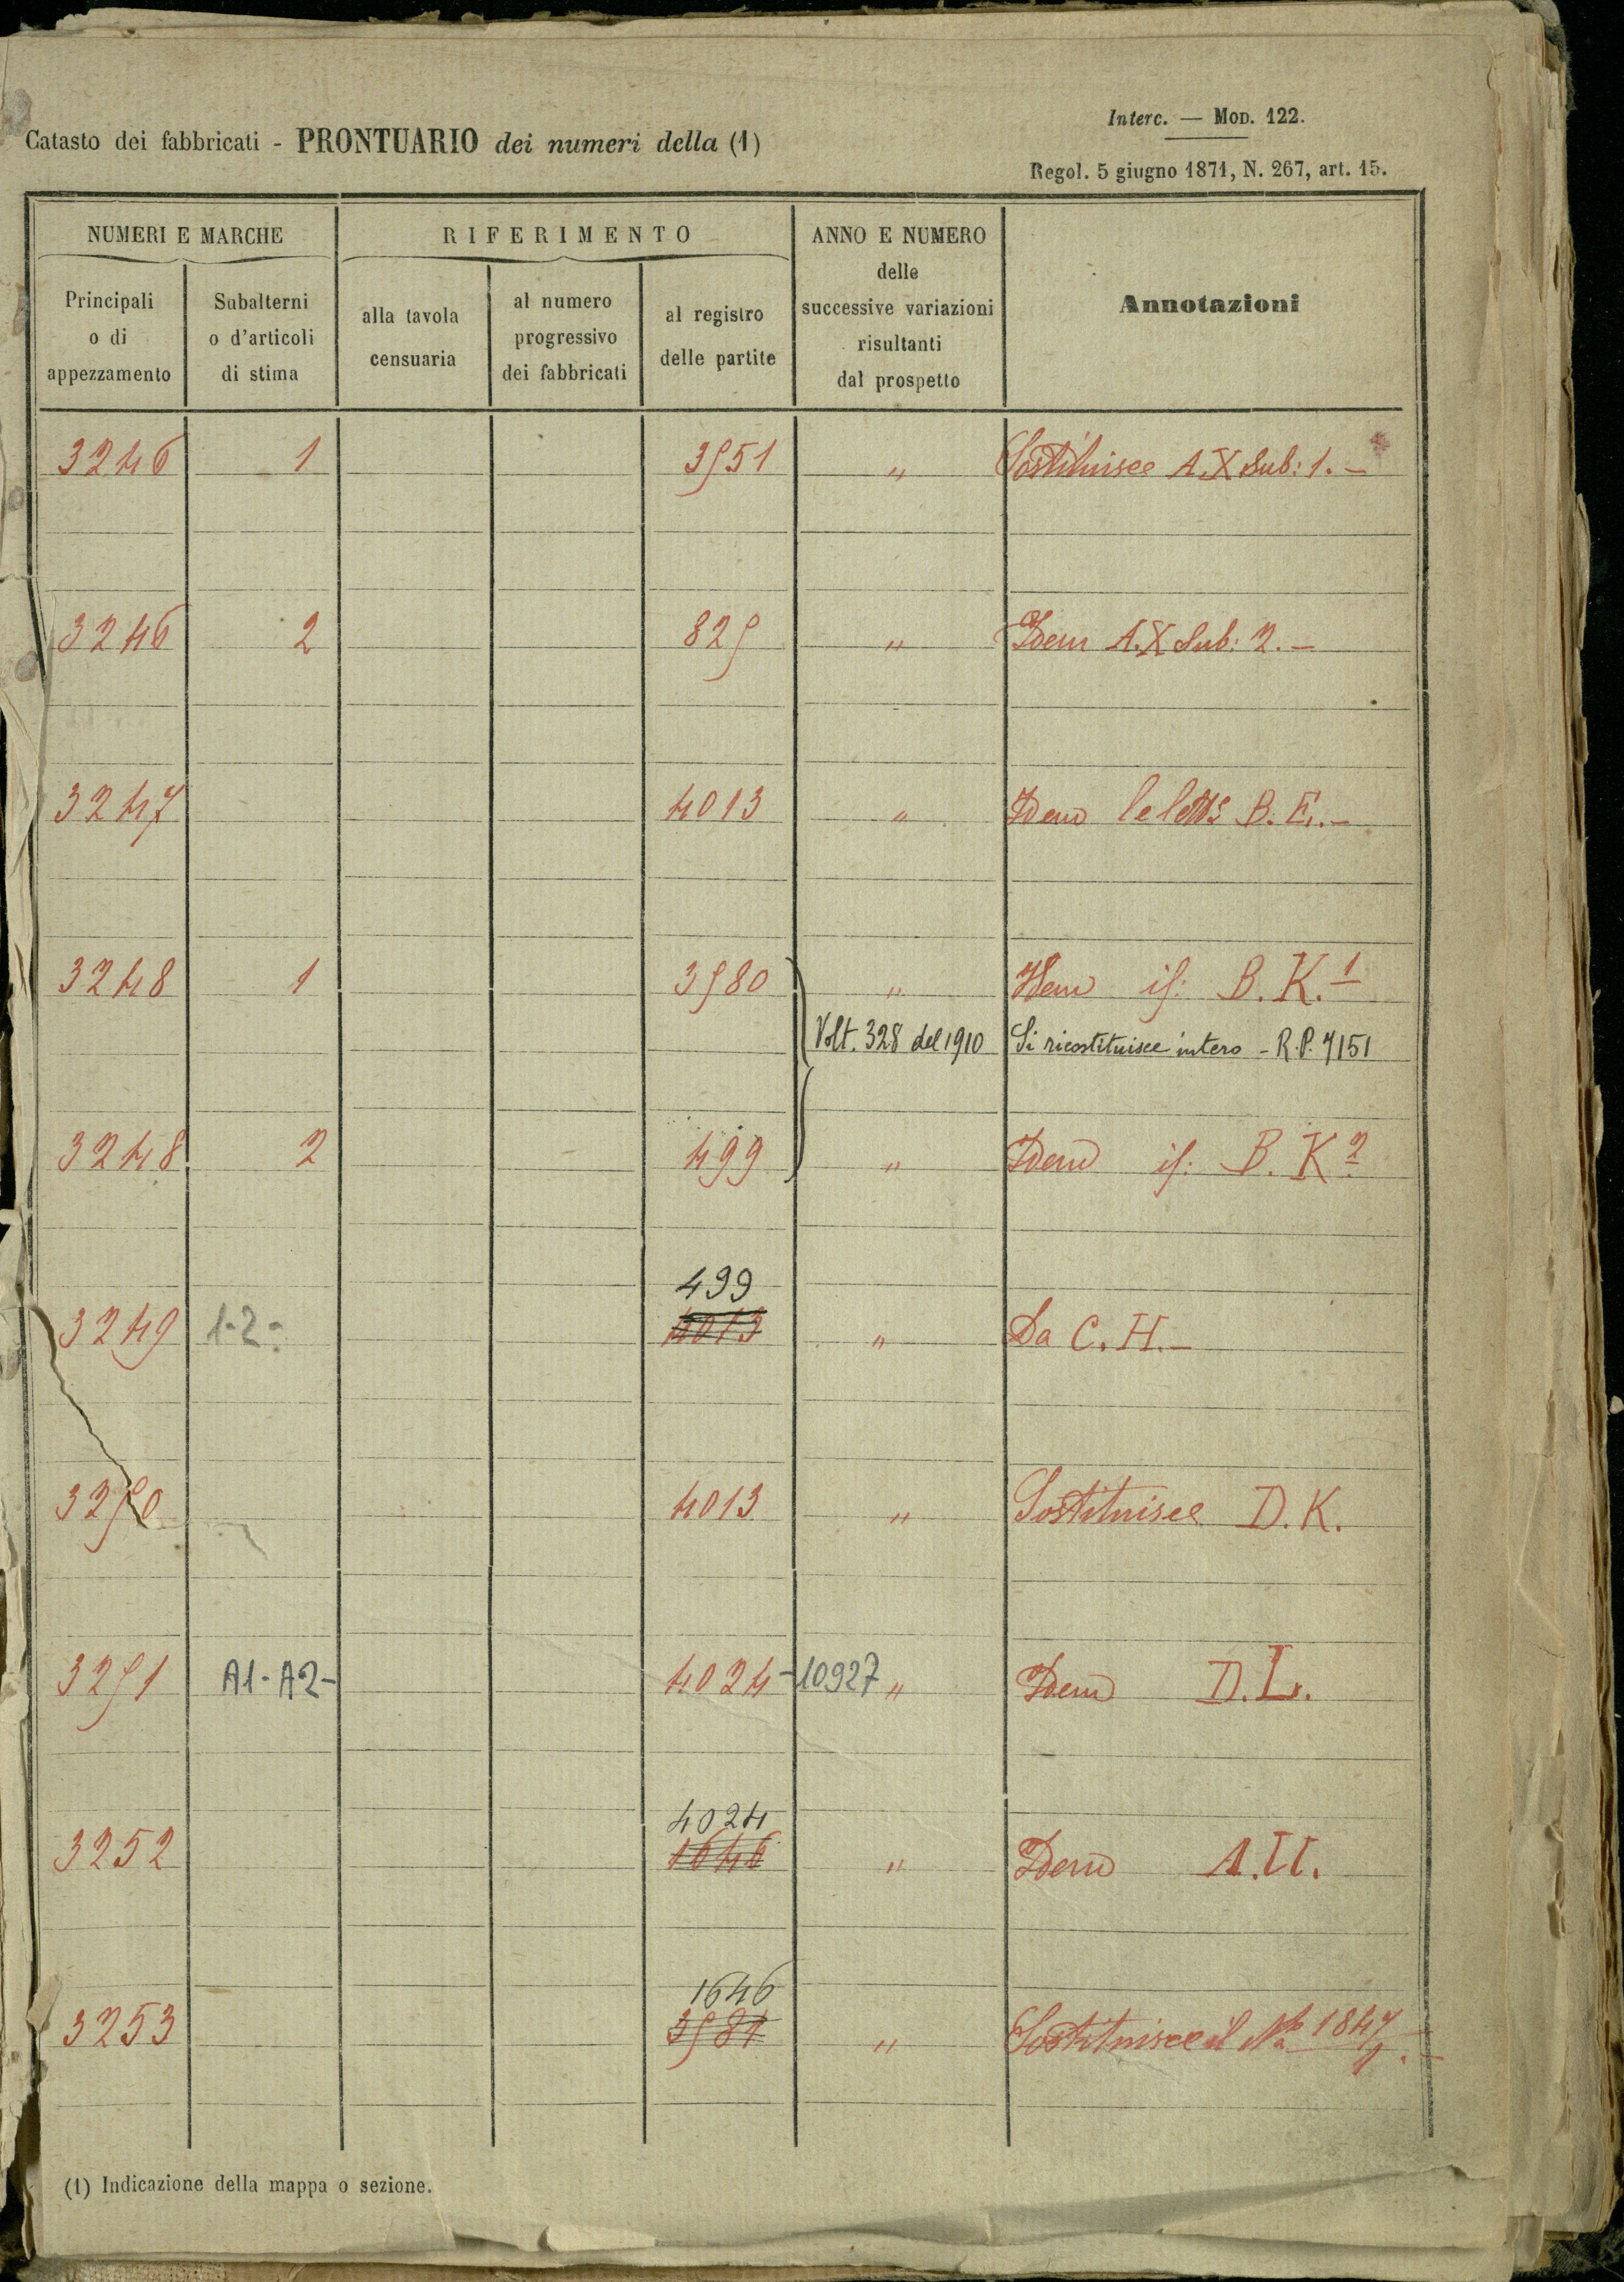 Interc. — MOD. 122.
Catasto dei fabbricati - PRONTUARIO dei numeri della (1)
Regol. 5 giugno 1871, N. 267, art. 15.
NUMERI E MARCHE
RIFERIMENTO
ANNO E NUMERO
delle
successive variazioni
risultanti
dal prospetto
Annotazioni
Principali
o di
appezzamento
Subalterni
o d'articoli
di stima
alla tavola
censuaria
al numero
progressivo
dei fabbricati
al registro
delle partite
3246 1 3551 " Sostituisce A.X Sub: 1. -
3246 2 825 " Idem A.X Sub: 2. -
3247 4013 " Idem B. E. -
3248 1 3580 " Idem B. K. 1
Volt. 328 del 1910 Si ricostituisce intero - R.P. 7151
3248 2 499 " Idem B. K 2
499
3249 1-2- 4013 " Da C. H. -
3250 4013 " Sostituisce D. K.
3251 A1-A2- 4024-10927 " Idem D. L.
4024
3252 1646 " Idem
1646
3253 3581 " Sostituisce il 1847
(1) Indicazione della mappa o sezione.